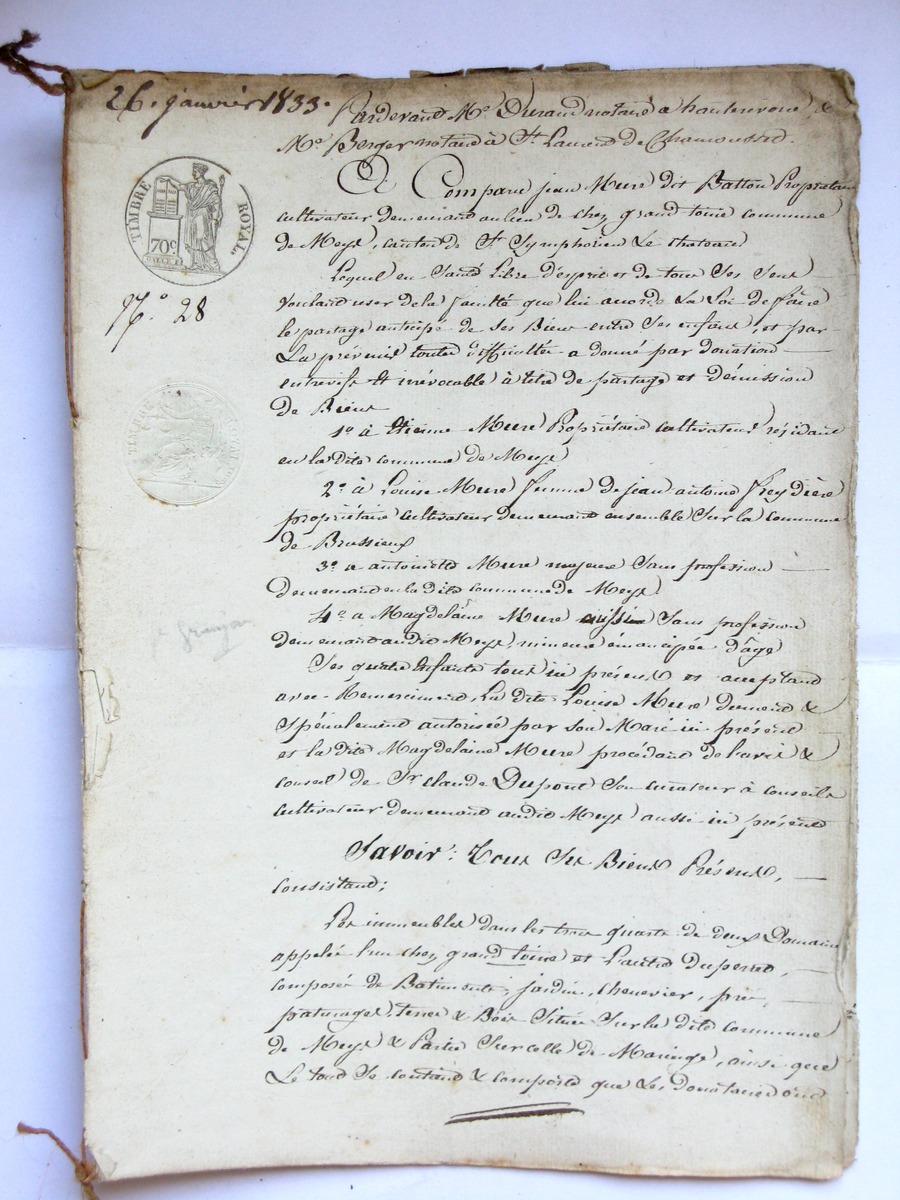 26. janvier 1833.
Pardevant Me. Durand notaire a hauterivoire, &
Me. Berger notaire à St. Laurent de Chamousset.
TIMBRE ROYAL
70c
No. 28
TIMBRE
A Comparu jean Mure dit Batton Propriétaire
cultivateur demeurant au lieu de chez grand toine commune
de Meys, canton de St. Symphorien Le chateau
Lequel en Santé Libre d'esprit et de tous Ses Sens
voulant user de la faculté que lui accorde La Loi de faire
le partage anticipé de Ses Biens entre Ses enfans, et par
La prévenir toutes difficultés a donné par donation
entrevifs & irrévocable à titre de partage et démission
de Biens
1o. à Etienne Mure Propriétaire cultivateur résidant
en la dite commune de Meys
2o. à Louise Mure femme de jean antoine Freydière
propriétaire cultivateur demeurant ensemble Sur la commune
de Brussieux
3o. a antoinette Mure majeure Sans profession
demeurant en la dite commune de Meys
4o. a Magdelaine Mure aussi Sans profession
demeurant audit Meys, mineure émancipée d'âge
Ses quatre Enfants tous ici présens et acceptant
avec Remerciment, La dite Louise Mure dument &
Spécialement autorisée par Son Mari ici présent
et la dite Magdelaine Mure procédant de l'avis &
conseil de Sr. claude Dupont Son curateur à conseils
cultivateur demeurant audit Meys aussi ici présent
Savoir: Tous Ses Biens Présens,
consistant;
Les immeubles dans les trois quarts de deux Domaines
appelés l'un chez grand toine et L'autre Duperret,
composés de Batiments, jardin, chenevier, prés,
paturages, terres & Bois Situés Sur la dite commune
de Meys & Partie Sur celle de Maringe, ainsi que
Le tout Se contient & comporte que Les Donataires ont